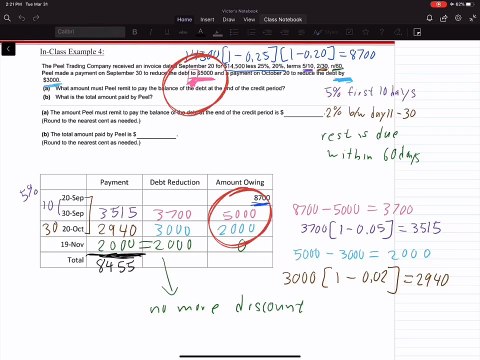 2:21 PM Tue Mar 31
62%
Victor's Notebook
Home Insert Draw View Class Notebook
In-Class Example 4:
14500[1-0.25][1-0.20]=8700
The Peel Trading Company received an invoice dated September 20 for $14,500 less 25%, 20%, terms 5/10, 2/30, n/60.
Peel made a payment on September 30 to reduce the debt to $5000 and a payment on October 20 to reduce the debt by
$3000.
(a) What amount must Peel remit to pay the balance of the debt at the end of the credit period?
(b) What is the total amount paid by Peel?
5% first 10 days
2% b/w day 11-30
rest is due
within 60 days
(a) The amount Peel must remit to pay the balance of the debt at the end of the credit period is $
(Round to the nearest cent as needed.)
(b) The total amount paid by Peel is $
(Round to the nearest cent as needed.)
Payment Debt Reduction Amount Owing
5%
10
20-Sep 8700
30-Sep 3515 3700 5000
30 20-Oct 2940 3000 2000
19-Nov 2000 = 2000 0
Total 8455
8700-5000 = 3700
3700[1-0.05] = 3515
5000-3000 = 2000
3000[1-0.02] = 2940
no more discount